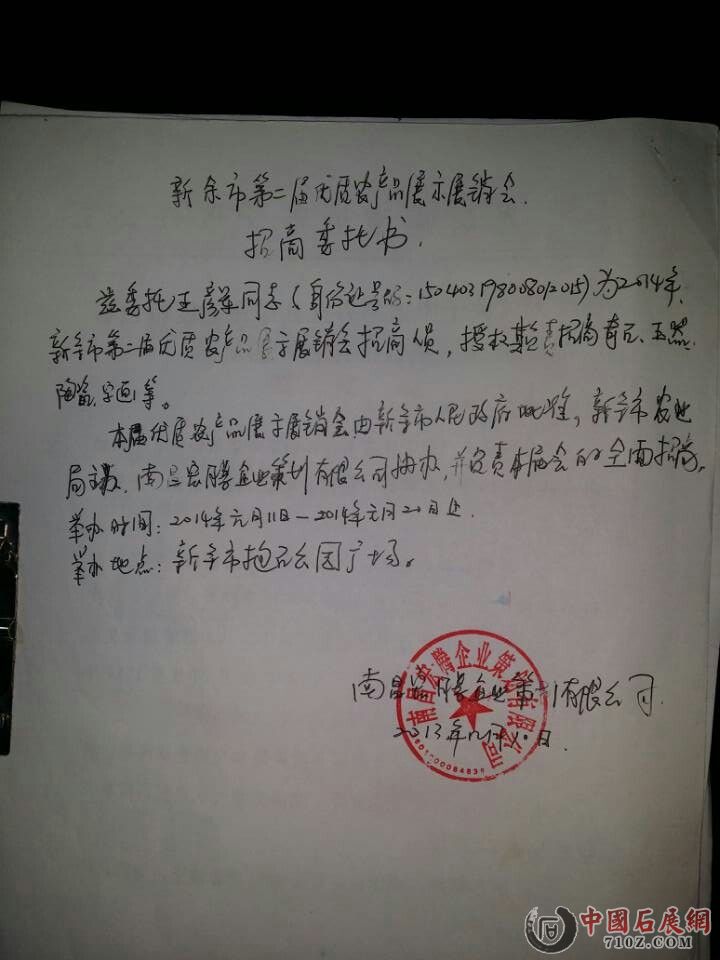 新余市第二届优质农产品展示展销会.
招商委托书.
兹委托王彦军同志(身份证号码:150403198008012015)为2014年
新余市第二届优质农产品展示展销会招商员,授权负责招商奇石、玉器、
陶瓷、字画等。
本届优质农产品展示展销会由新余市人民政府批准,新余市农业
局主办,南昌宏腾企业策划有限公司协办,并负责本届会的全面招商。
举办时间:2014年元月11日—2014年元月20日止.
举办地点:新余市抱石公园广场。
南昌宏腾企业策划有限公司
2013年12月10日.
南昌宏腾企业策划有限公司
中國石展網
710Z.COM